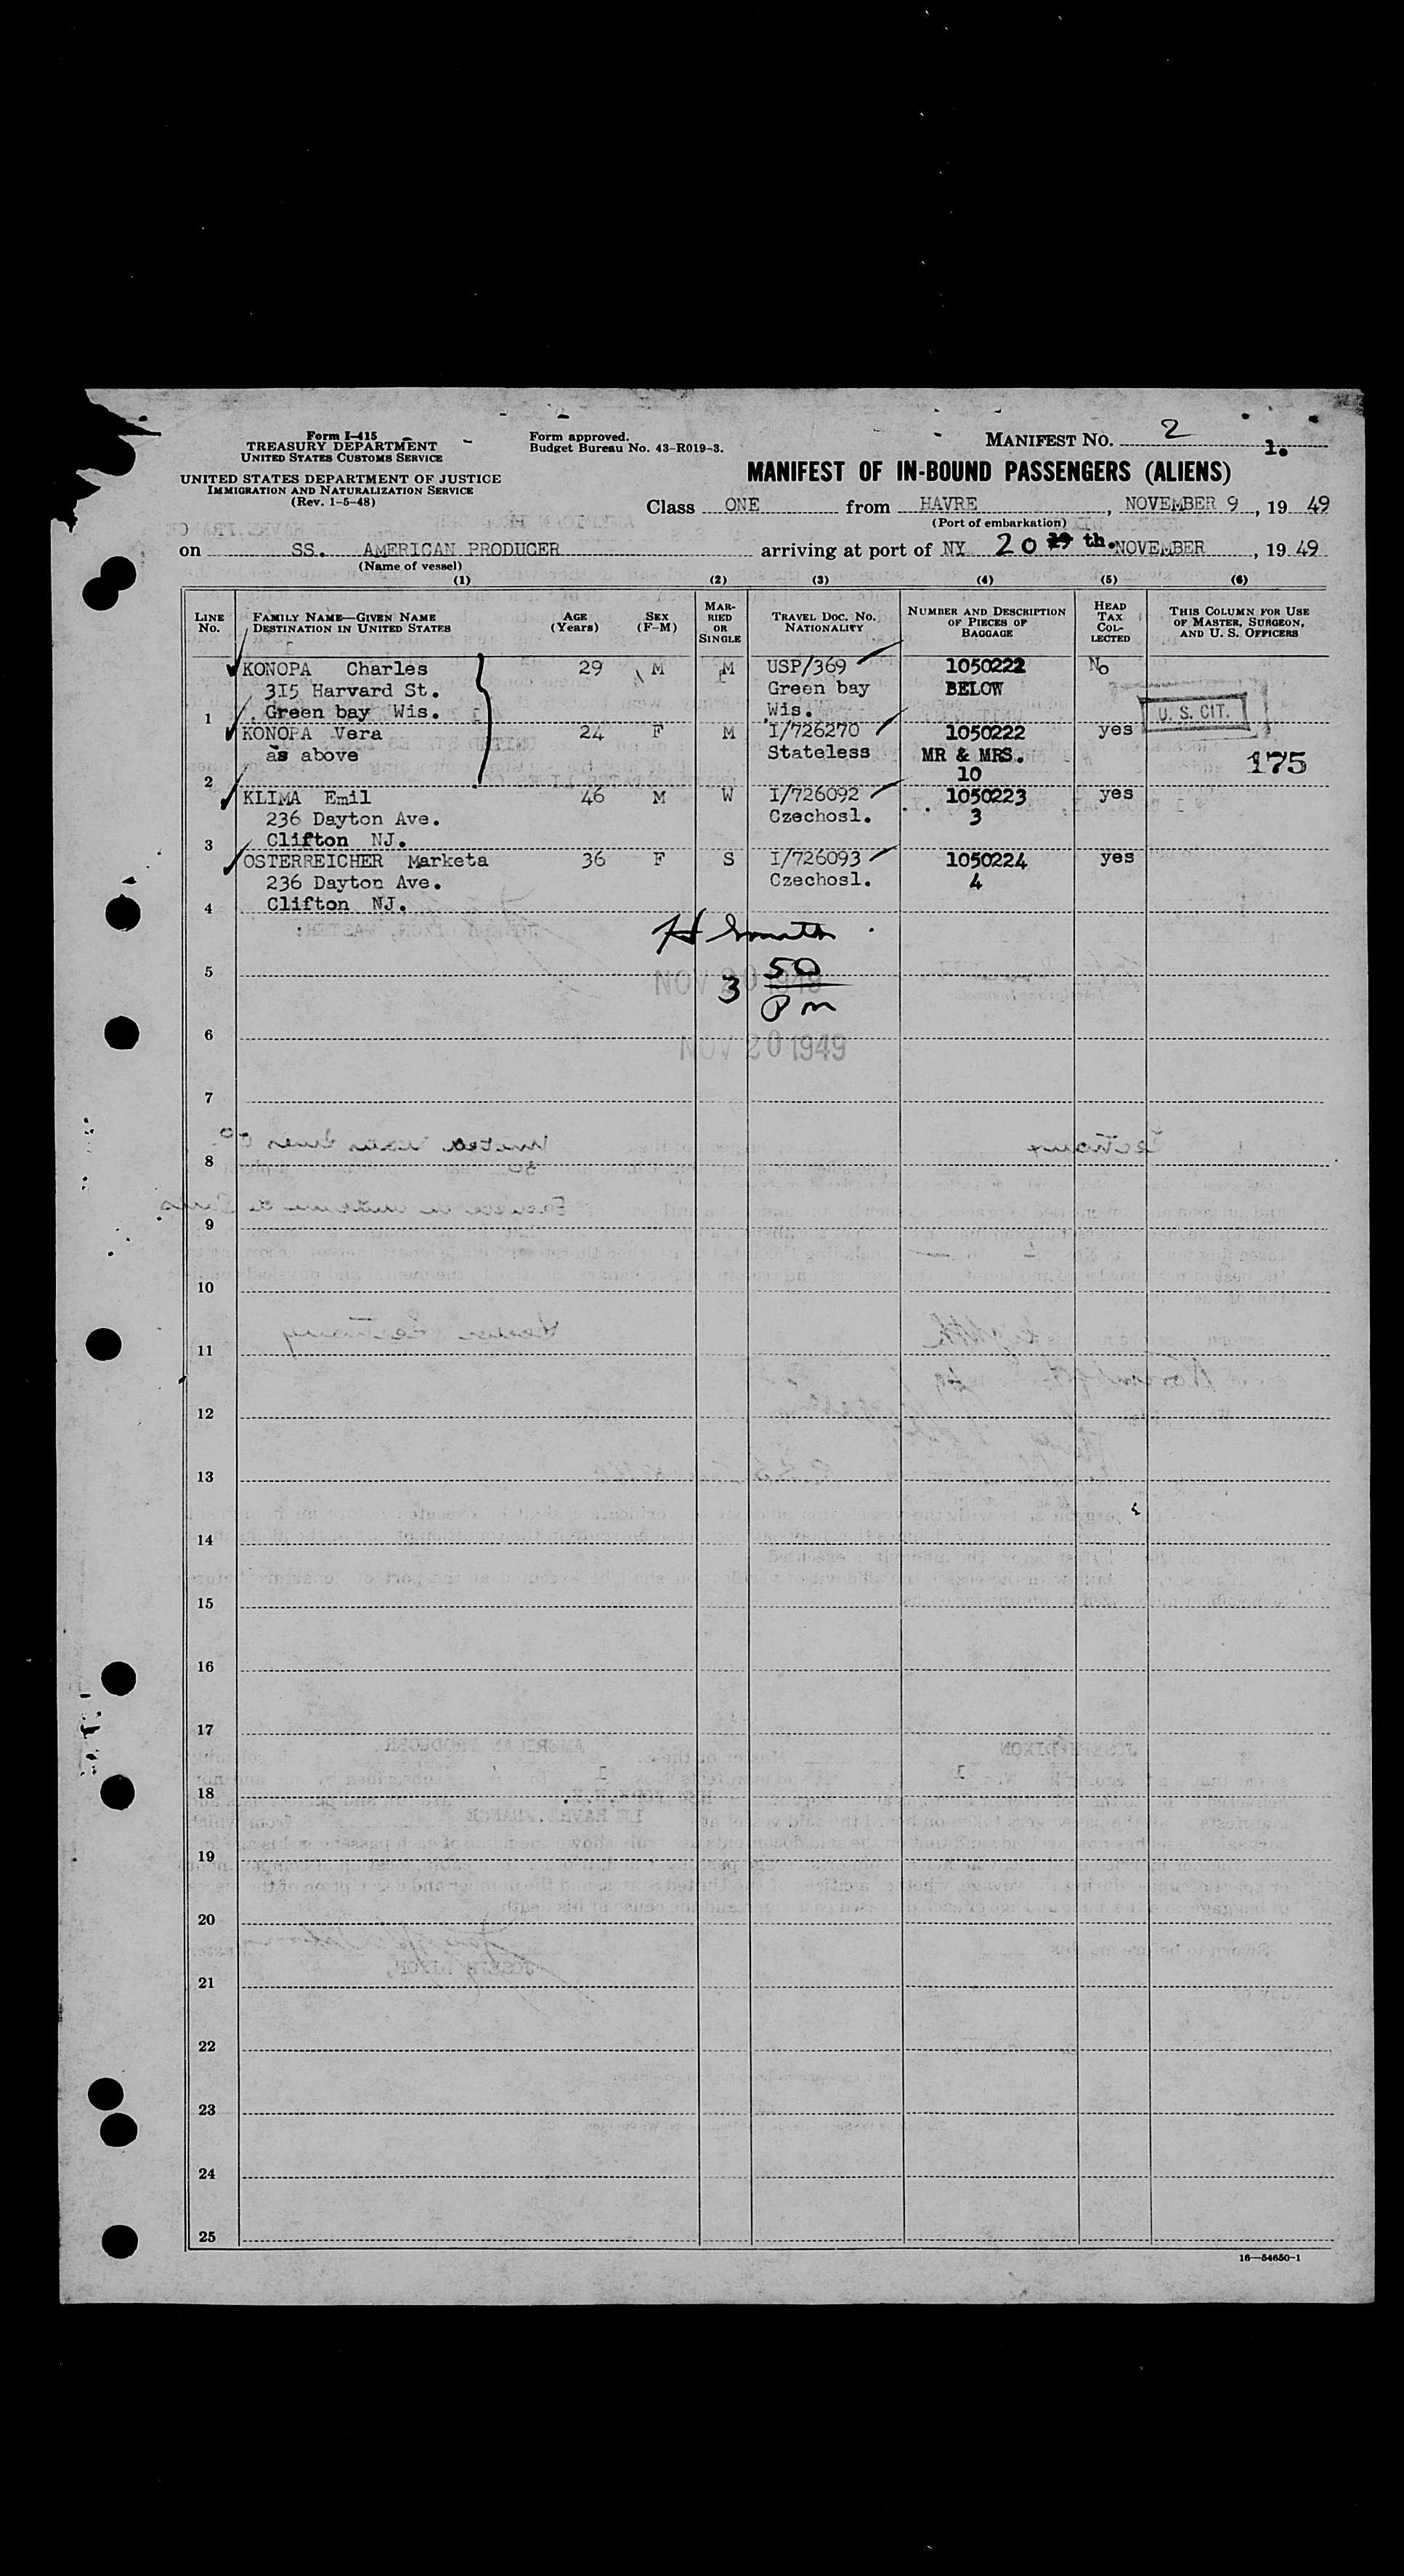 Form I-415
TREASURY DEPARTMENT
UNITED STATES CUSTOMS SERVICE
UNITED STATES DEPARTMENT OF JUSTICE
IMMIGRATION AND NATURALIZATION SERVICE
(Rev. 1-5-48)
Form approved.
Budget Bureau No. 43-R019-3.
MANIFEST NO. 2
1.
MANIFEST OF IN-BOUND PASSENGERS (ALIENS)
Class ONE from HAVRE, NOVEMBER 9, 19 49
(Port of embarkation)
on SS. AMERICAN PRODUCER arriving at port of NY 20 th. NOVEMBER, 19 49
(Name of vessel)
(1) (2) (3) (4) (5) (6)
LINE No. FAMILY NAME—GIVEN NAME DESTINATION IN UNITED STATES AGE (Years) SEX (F-M) MARRIED OR SINGLE TRAVEL DOC. NO. NATIONALITY NUMBER AND DESCRIPTION OF PIECES OF BAGGAGE HEAD TAX COLLECTED THIS COLUMN FOR USE OF MASTER, SURGEON, AND U. S. OFFICERS
KONOPA Charles 29 M M USP/369 1050222 No
315 Harvard St. Green bay BELOW
1 Green bay Wis. Wis. U. S. CIT.
KONOPA Vera 24 F M I/726270 1050222 yes
as above Stateless MR & MRS. 175
2 10
KLIMA Emil 46 M W I/726092 1050223 yes
236 Dayton Ave. Czechosl. 3
3 Clifton NJ.
OSTERREICHER Marketa 36 F S I/726093 1050224 yes
236 Dayton Ave. Czechosl. 4
4 Clifton NJ.
H Smith
5 NOV 20 1949
3 50 Pm
6 NOV 20 1949
7
8
9
10
11
12
13
14
15
16
17
18
19
20
21
22
23
24
25
16—54650-1